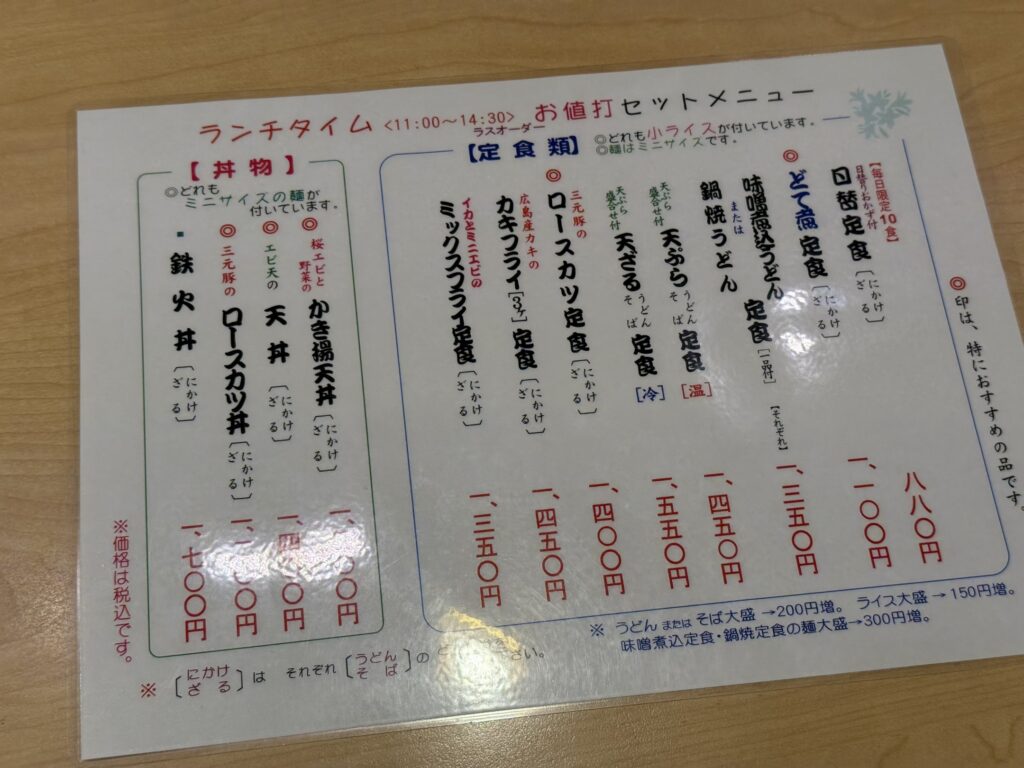 ランチタイム <11:00～14:30> お値打セットメニュー
ラスオーダー
【定食類】
◎どれも小ライスが付いています。
◎麺はミニサイズです。
◎印は、特におすすめの品です。
【毎日限定10食】
日替りおかず付
日替定食〔にかけ ざる〕 八八〇円
◎どて煮定食〔にかけ ざる〕 一、一〇〇円
味噌煮込うどん
または
鍋焼うどん
定食［一品付］［それぞれ］ 一、三五〇円
天ぷら盛合せ付 天ぷら うどん そば 定食［温］ 一、四五〇円
天ぷら盛合せ付 天ざる うどん そば 定食［冷］ 一、五五〇円
◎三元豚の ロースカツ定食〔にかけ ざる〕 一、四〇〇円
広島産カキの カキフライ［3ヶ］定食〔にかけ ざる〕 一、四五〇円
イカとミニエビの ミックスフライ定食〔にかけ ざる〕 一、三五〇円
※ うどん または そば大盛 →200円増。 ライス大盛 → 150円増。
味噌煮込定食・鍋焼定食の麺大盛→300円増。
【丼物】
◎どれも
ミニサイズの麺が
付いています。
◎桜エビと野菜の かき揚天丼〔にかけ ざる〕 一、 〇〇円
◎エビ天の 天丼〔にかけ ざる〕 一、四〇〇円
◎三元豚の ロースカツ丼〔にかけ ざる〕 一、 〇〇円
▪鉄火丼〔にかけ ざる〕 一、七〇〇円
※価格は税込です。
※〔にかけ ざる〕は それぞれ〔うどん そば〕の さい。